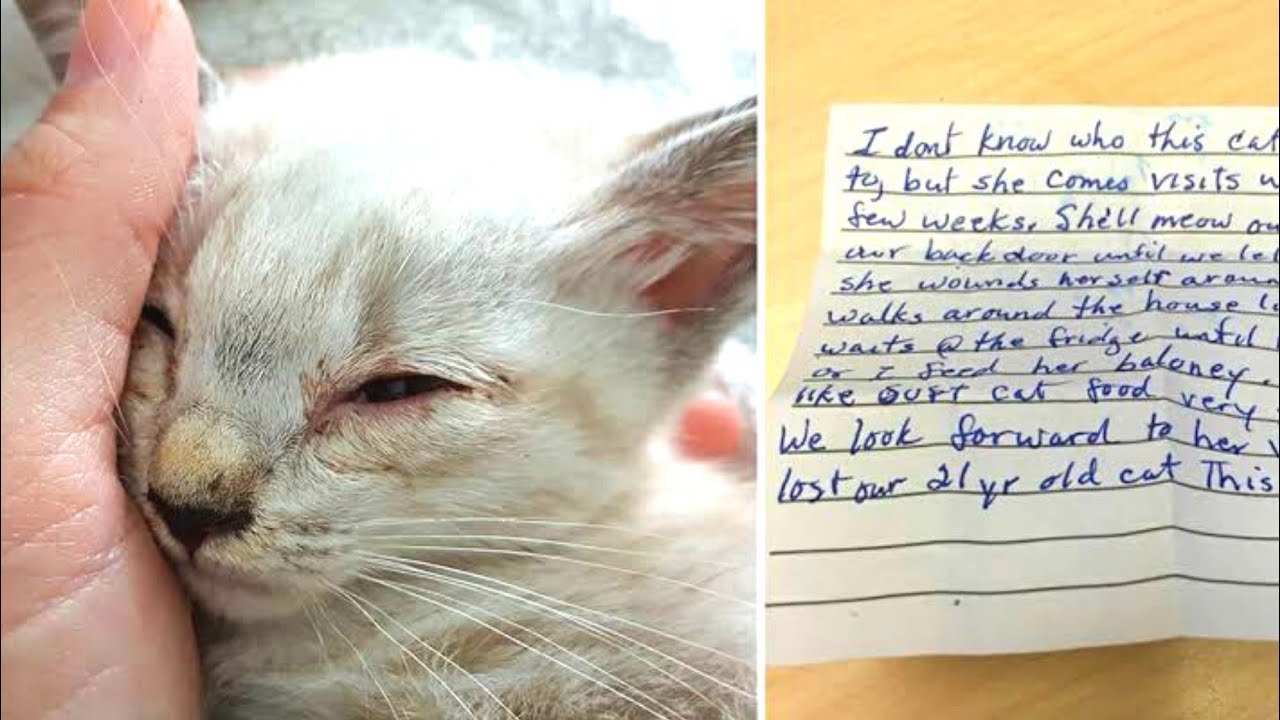 I dont know who this cat
to, but she comes visits
few weeks. She'll meow ou
our back door until we le
she wounds herself aroun
walks around the house l
waits @ the fridge until
or I feed her baloney.
like our cat food very
We look forward to her
lost our 21 yr old cat This